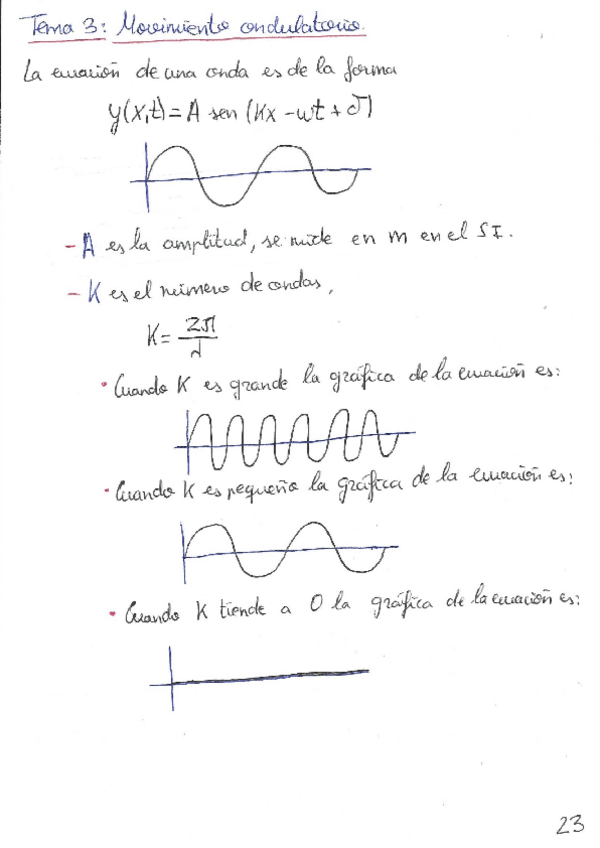 Tema 3: Movimiento ondulatorio.
La ecuación de una onda es de la forma
y(x,t) = A sen (Kx - wt + δ)
- A es la amplitud, se mide en m en el SI.
- K es el número de ondas,
K = 2π/λ
• Cuando K es grande la gráfica de la ecuación es:
• Cuando K es pequeño la gráfica de la ecuación es:
• Cuando K tiende a 0 la gráfica de la ecuación es:
23